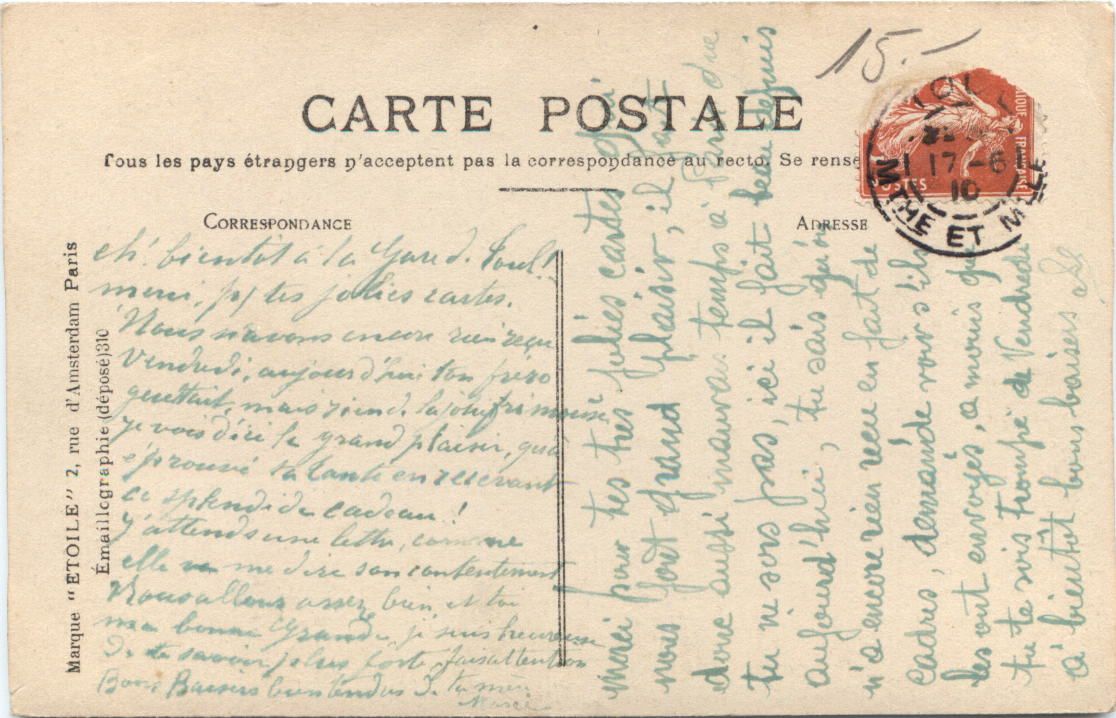 15.-
CARTE POSTALE
Tous les pays étrangers n'acceptent pas la correspondance au recto. Se rense
CORRESPONDANCE
ADRESSE
17-6
10
MTHE ET MLLE
POSTES
FRANÇAISE
Marque "ETOILE" 2, rue d'Amsterdam Paris
Émaillographie (déposé) 310
eh! bientôt à la Gare d. Toul!
merci, pr tes jolies cartes.
Nous n'avons encore rien reçu
Vendredi, aujourd'hui ton frère
guettait, mais rien d. la
je vois d'ici le grand plaisir, qu'a
éprouvé ta tante en recevant
ce splendide cadeau!
J'attends une lettre, comme
elle va me dire son contentement
Nous allons assez bien, et toi
ma bonne Grande, je suis heureuse
d. te savoir plus forte, fais attention
Bons Baisers bien tendres d. ta mère
merci pour tes très jolies cartes qui
nous font grand plaisir, il fait
donc aussi mauvais temps à Paris que
tu ne sors pas, ici il fait beau depuis
aujourd'hui, tu sais qu'on
n'a encore rien reçu en fait de
cadres, demande voir s'ils
les ont envoyés, a moins que
tu te sois trompé de Vendredi
à bientôt bons baisers